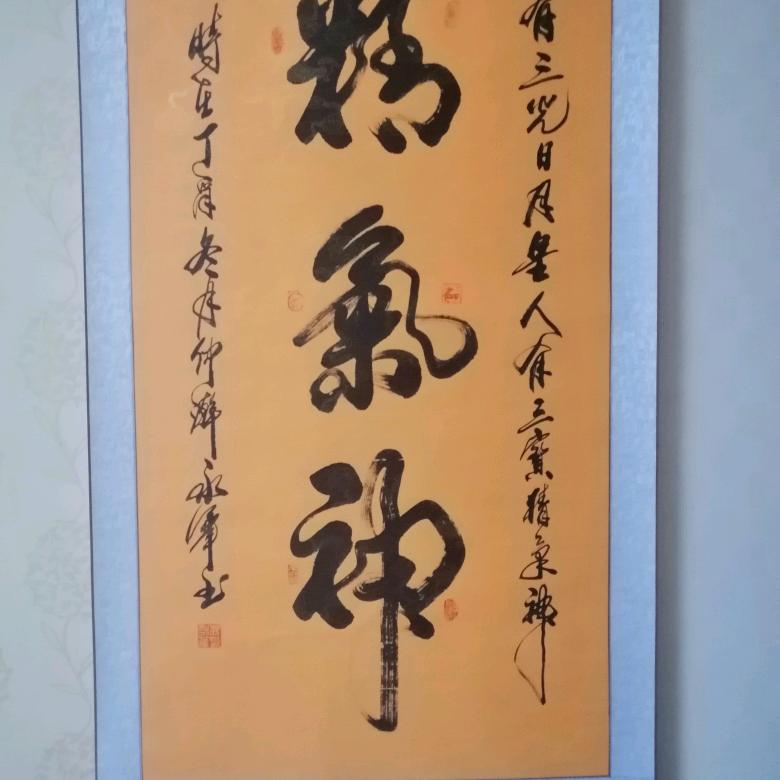 有三光日月星人有三寶精氣神
精氣神
時在丁酉冬月仲永軍书